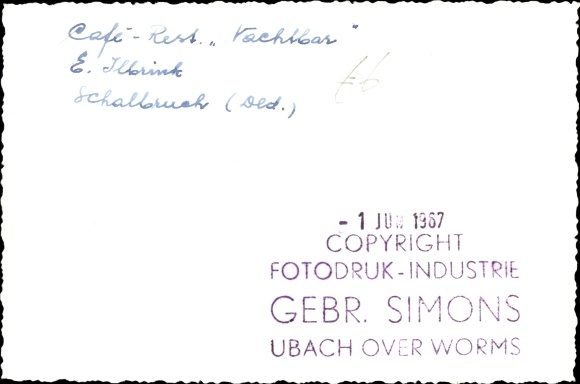 Café-Rest. „Yachtbar"
E. Ilbrink
Schalbruch (Dld.)
- 1 JUN 1967
COPYRIGHT
FOTODRUK-INDUSTRIE
GEBR. SIMONS
UBACH OVER WORMS